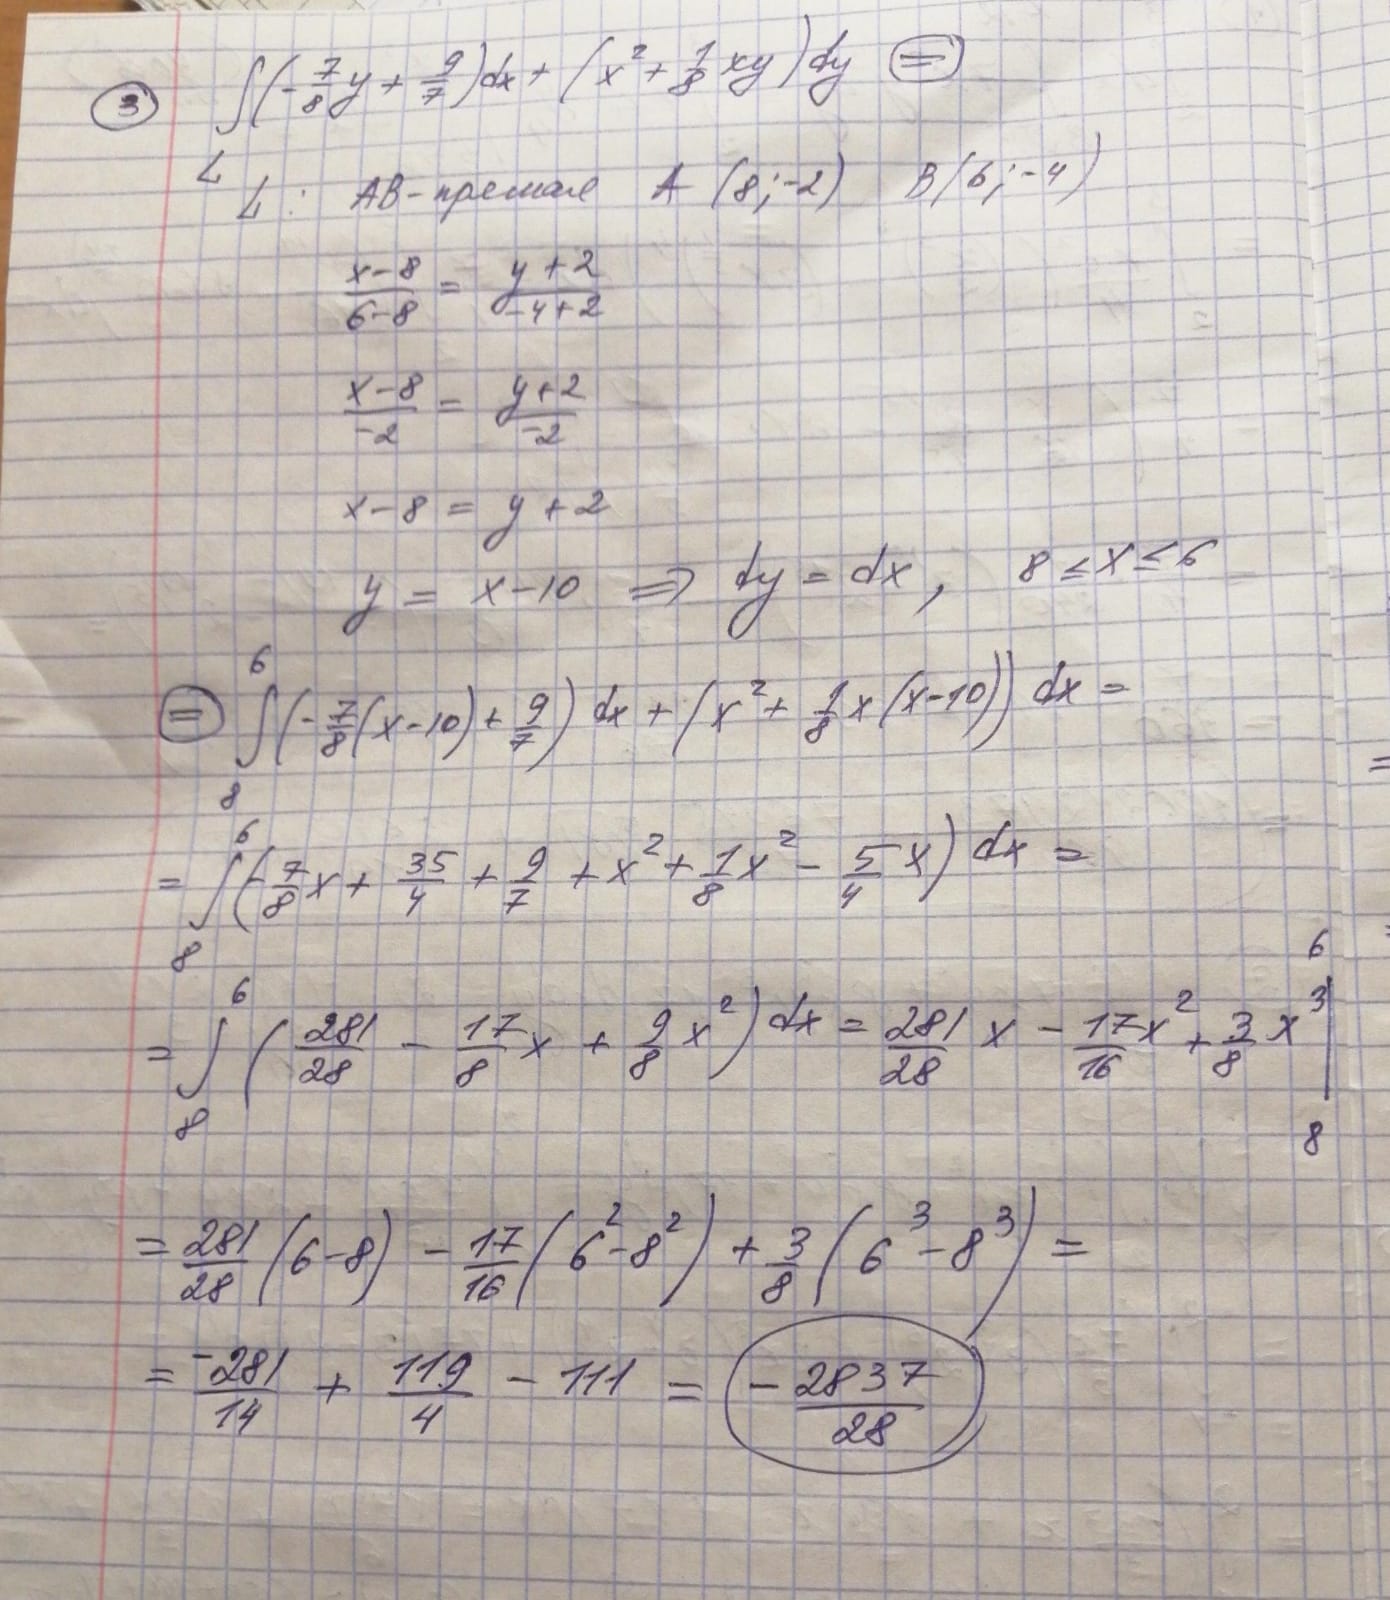 ③ ∫(-7/8 y + 9/7)dx + (x² + 1/8 xy)dy ⊜
L
L: AB - прямая A (8; -2) B(6; -4)
(x-8)/(6-8) = (y+2)/(-4+2)
(x-8)/(-2) = (y+2)/(-2)
x-8 = y+2
y = x-10 ⇒ dy = dx, 8 ≤ x ≤ 6
⊜ ∫₈⁶ (-7/8(x-10) + 9/7) dx + (x² + 1/8 x(x-10)) dx =
= ∫₈⁶ (-7/8 x + 35/4 + 9/7 + x² + 1/8 x² - 5/4 x) dx =
= ∫₈⁶ (281/28 - 17/8 x + 9/8 x²) dx = 281/28 x - 17/16 x² + 3/8 x³ |₈⁶
= 281/28 (6-8) - 17/16 (6² - 8²) + 3/8 (6³ - 8³) =
= -281/14 + 119/4 - 111 = -2837/28